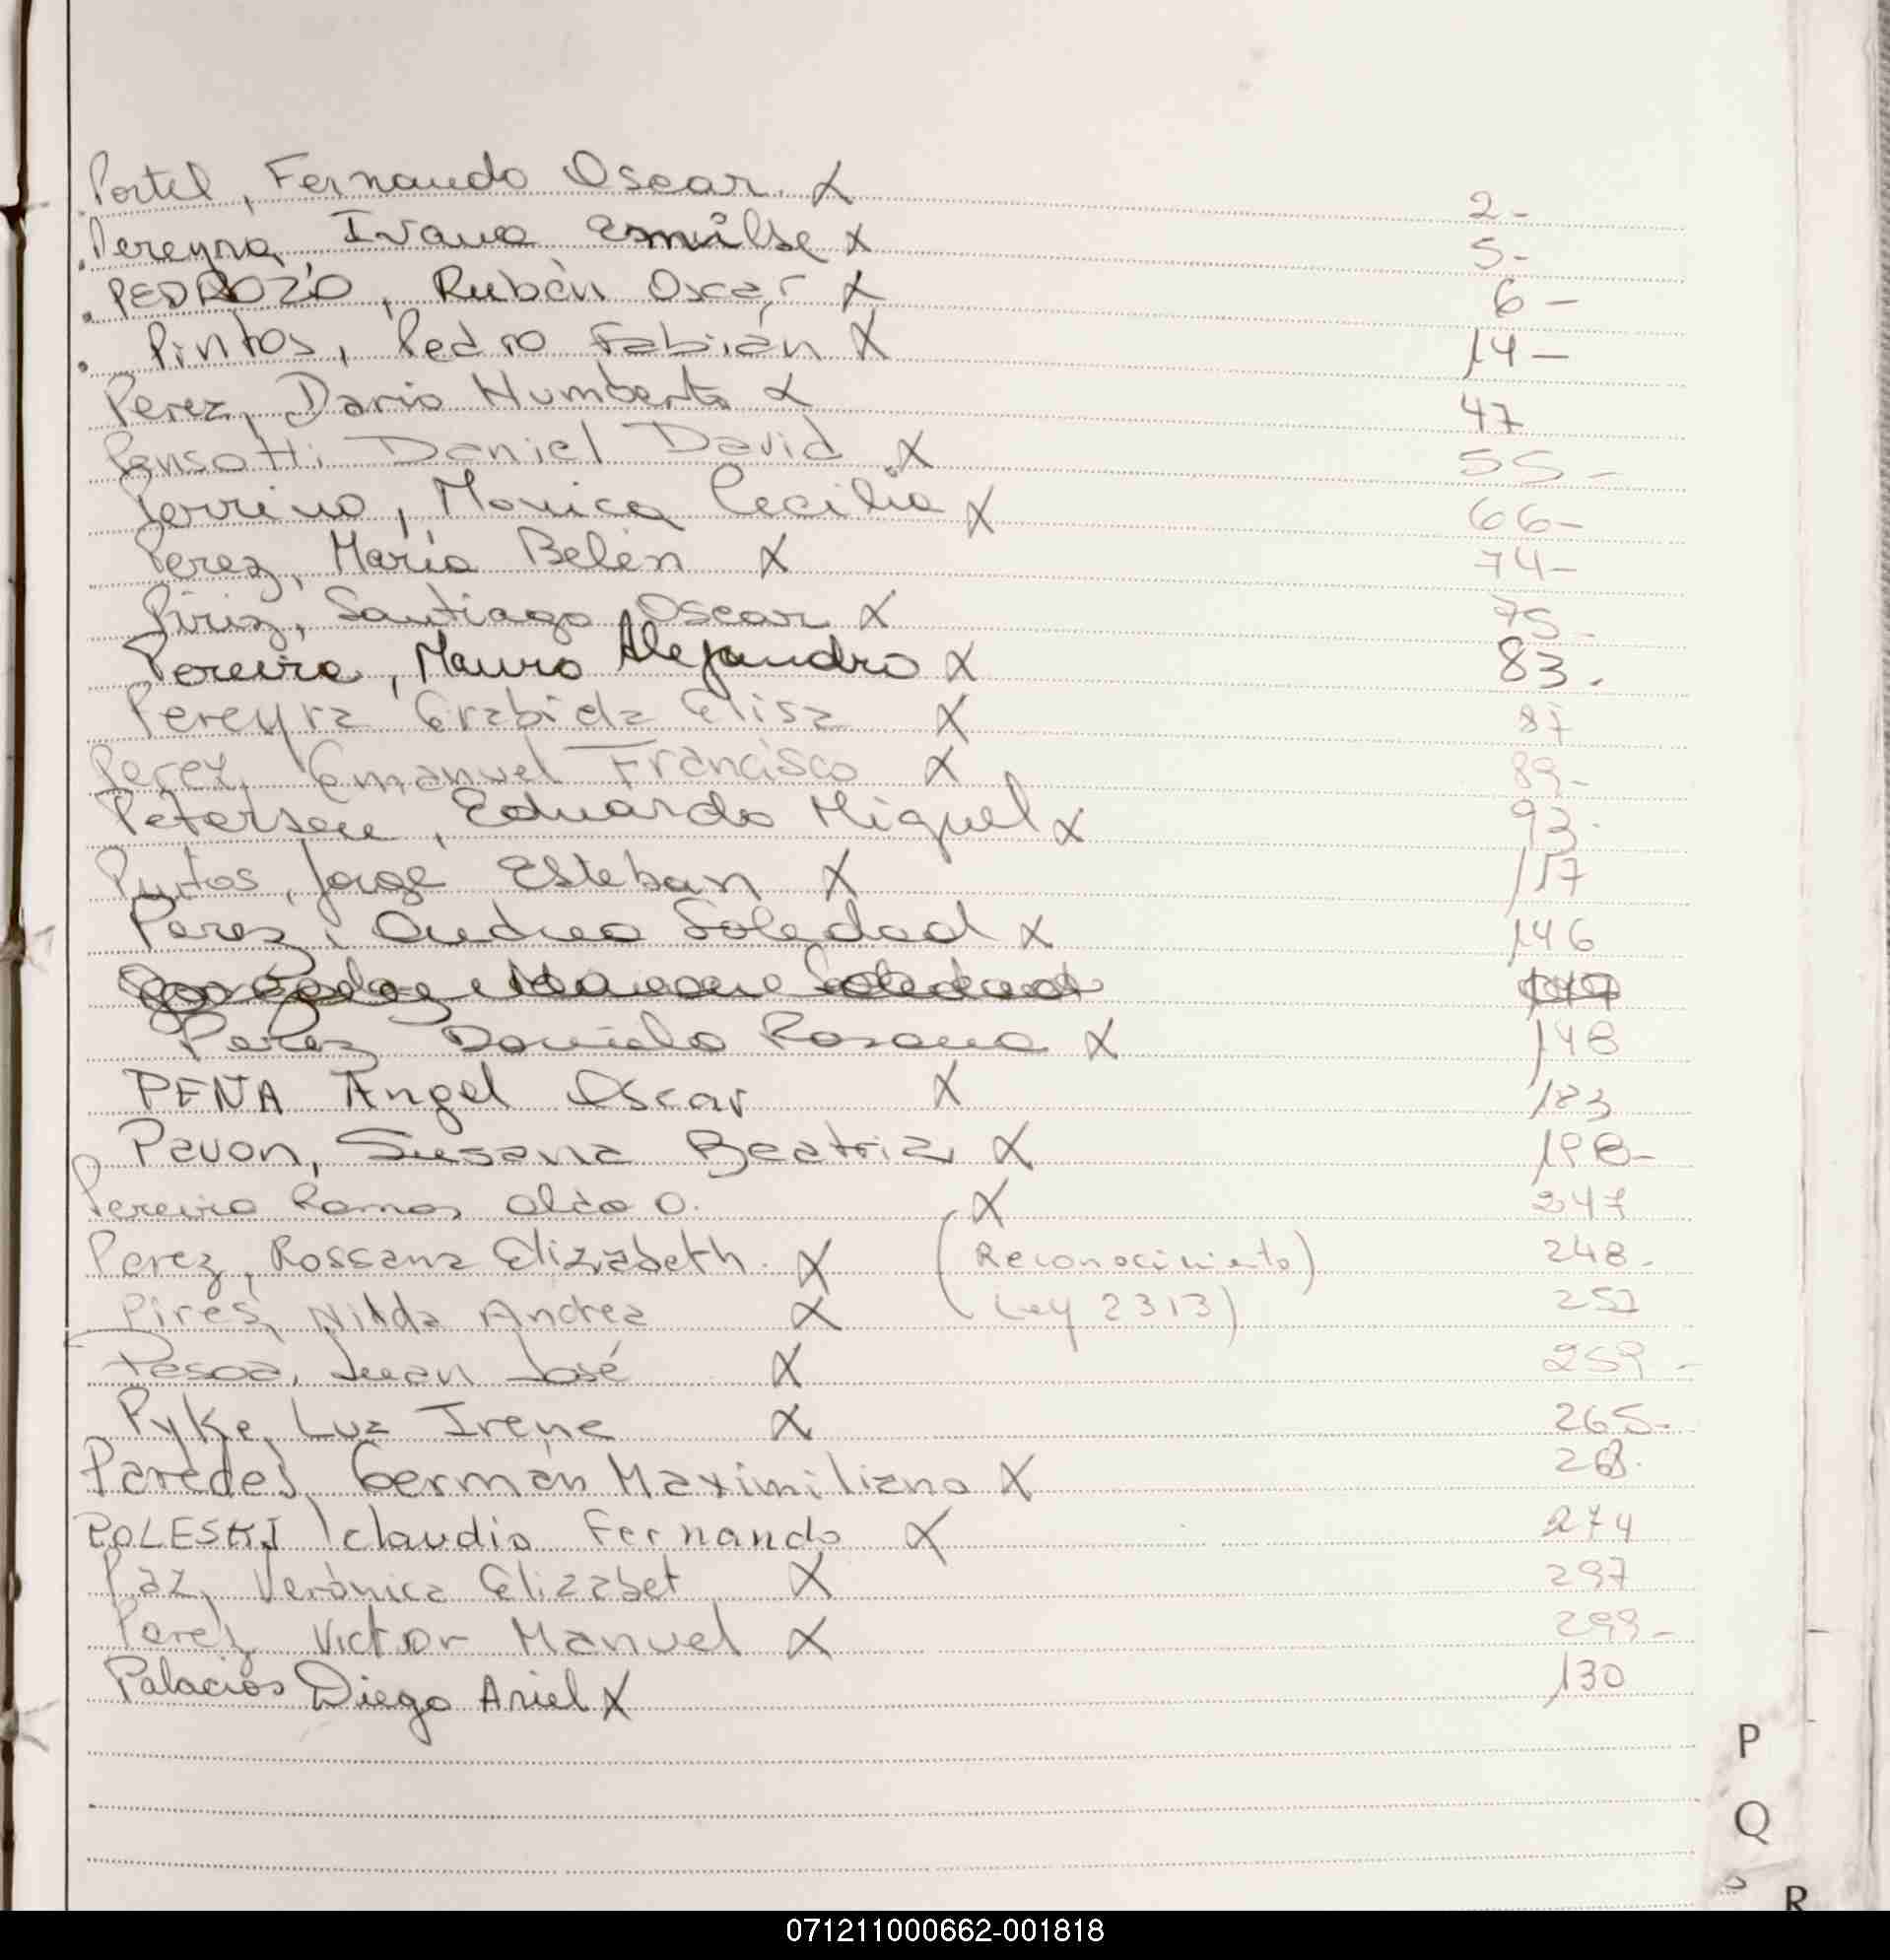 Portel, Fernando Oscar. X 2-
Pereyra Ivana Emilse X 5-
PEDROZO, Rubén Oscar X 6-
Pintos, Pedro Fabián X 14-
Perez, Dario Humberto X 47
Pensotti Daniel David X 55-
Perrino, Monica Cecilia X 66-
Perez, María Belén X 74-
Piriz, Santiago Oscar X 75-
Pereira, Mauro Alejandro X 83.
Pereyra Grabiela Elisa X 87
Perez, Emanuel Francisco X 89-
Petersen, Eduardo Miguel X 93.
Pintos, Jorge Esteban X 117
Perez, Andrea Soledad X 146
Soledad 147
Perez Daniela Rosana X 148
PEÑA Angel Oscar X 183
Pavon, Susana Beatriz X 198-
Pereira Ramos Alda O. X 247
Perez, Rossana Elizabeth. X (Reconocimiento) 248-
Pires, Nilda Andrea X (Ley 2313) 252
Pesoa, Juan José X 259-
Pyke, Luz Irene X 265-
Paredes, Germán Maximiliano X 268.
POLESKI, Claudio Fernando X 274
Paz, Verónica Elizabet X 297
Perez, Victor Manuel X 299-
Palacios Diego Ariel X 130
P
Q
R
071211000662-001818